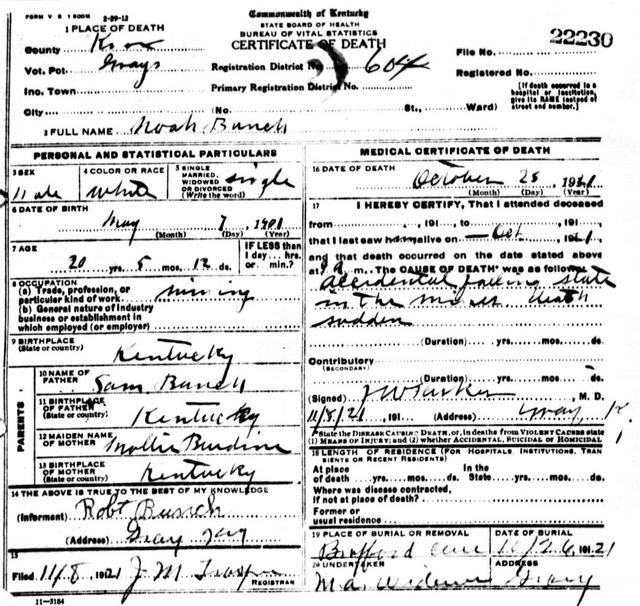 FORM V S 1 500M 2-29-12
Commonwealth of Kentucky
STATE BOARD OF HEALTH
BUREAU OF VITAL STATISTICS
CERTIFICATE OF DEATH
1 PLACE OF DEATH
County Knox
Vot. Pct. Grays
Inc. Town
City
(No. St., Ward)
Registration District No. 604
Primary Registration District No.
File No. 22230
Registered No.
[If death occurred in a hospital or institution, give its NAME instead of street and number.]
2 FULL NAME Noah Bunch
PERSONAL AND STATISTICAL PARTICULARS
3 SEX Male
4 COLOR OR RACE White
5 SINGLE, MARRIED, WIDOWED OR DIVORCED (Write the word) Single
6 DATE OF BIRTH
May 7, 1901
(Month) (Day) (Year)
7 AGE
20 yrs. 5 mos. ds.
IF LESS than 1 day... hrs. or min.?
8 OCCUPATION
(a) Trade, profession, or particular kind of work mining
(b) General nature of industry business or establishment in which employed (or employer)
9 BIRTHPLACE
(State or country) Kentucky
PARENTS
10 NAME OF FATHER Sam Bunch
11 BIRTHPLACE OF FATHER (State or country) Kentucky
12 MAIDEN NAME OF MOTHER Mollie Burdine
13 BIRTHPLACE OF MOTHER (State or country) Kentucky
14 THE ABOVE IS TRUE TO THE BEST OF MY KNOWLEDGE
(Informant) Robt Bunch
(Address) Gray Ky
15
Filed 11/8 1921 J M
REGISTRAR
11-3184
MEDICAL CERTIFICATE OF DEATH
16 DATE OF DEATH
October 25, 1921
(Month) (Day) (Year)
17 I HEREBY CERTIFY, That I attended deceased
from , 191 , to , 191
that I last saw h alive on Oct , 191
and that death occurred on the date stated above
at m. The CAUSE OF DEATH* was as follows:
Accidental falling slate
in the mines death
sudden
(Duration) yrs. mos. ds.
Contributory
(SECONDARY)
(Duration) yrs. mos. ds.
(Signed) J W Parker, M. D.
11/8/21, 191 (Address) Gray K
*State the DISEASE CAUSING DEATH, or, in deaths from VIOLENT CAUSES state (1) MEANS OF INJURY; and (2) whether ACCIDENTAL, SUICIDAL OR HOMICIDAL
18 LENGTH OF RESIDENCE (FOR HOSPITALS, INSTITUTIONS, TRANSIENTS OR RECENT RESIDENTS)
At place of death yrs. mos. ds. In the State yrs. mos. ds.
Where was disease contracted, if not at place of death?
Former or usual residence
19 PLACE OF BURIAL OR REMOVAL
DATE OF BURIAL
10/26, 1921
20 UNDERTAKER
ADDRESS
Gray